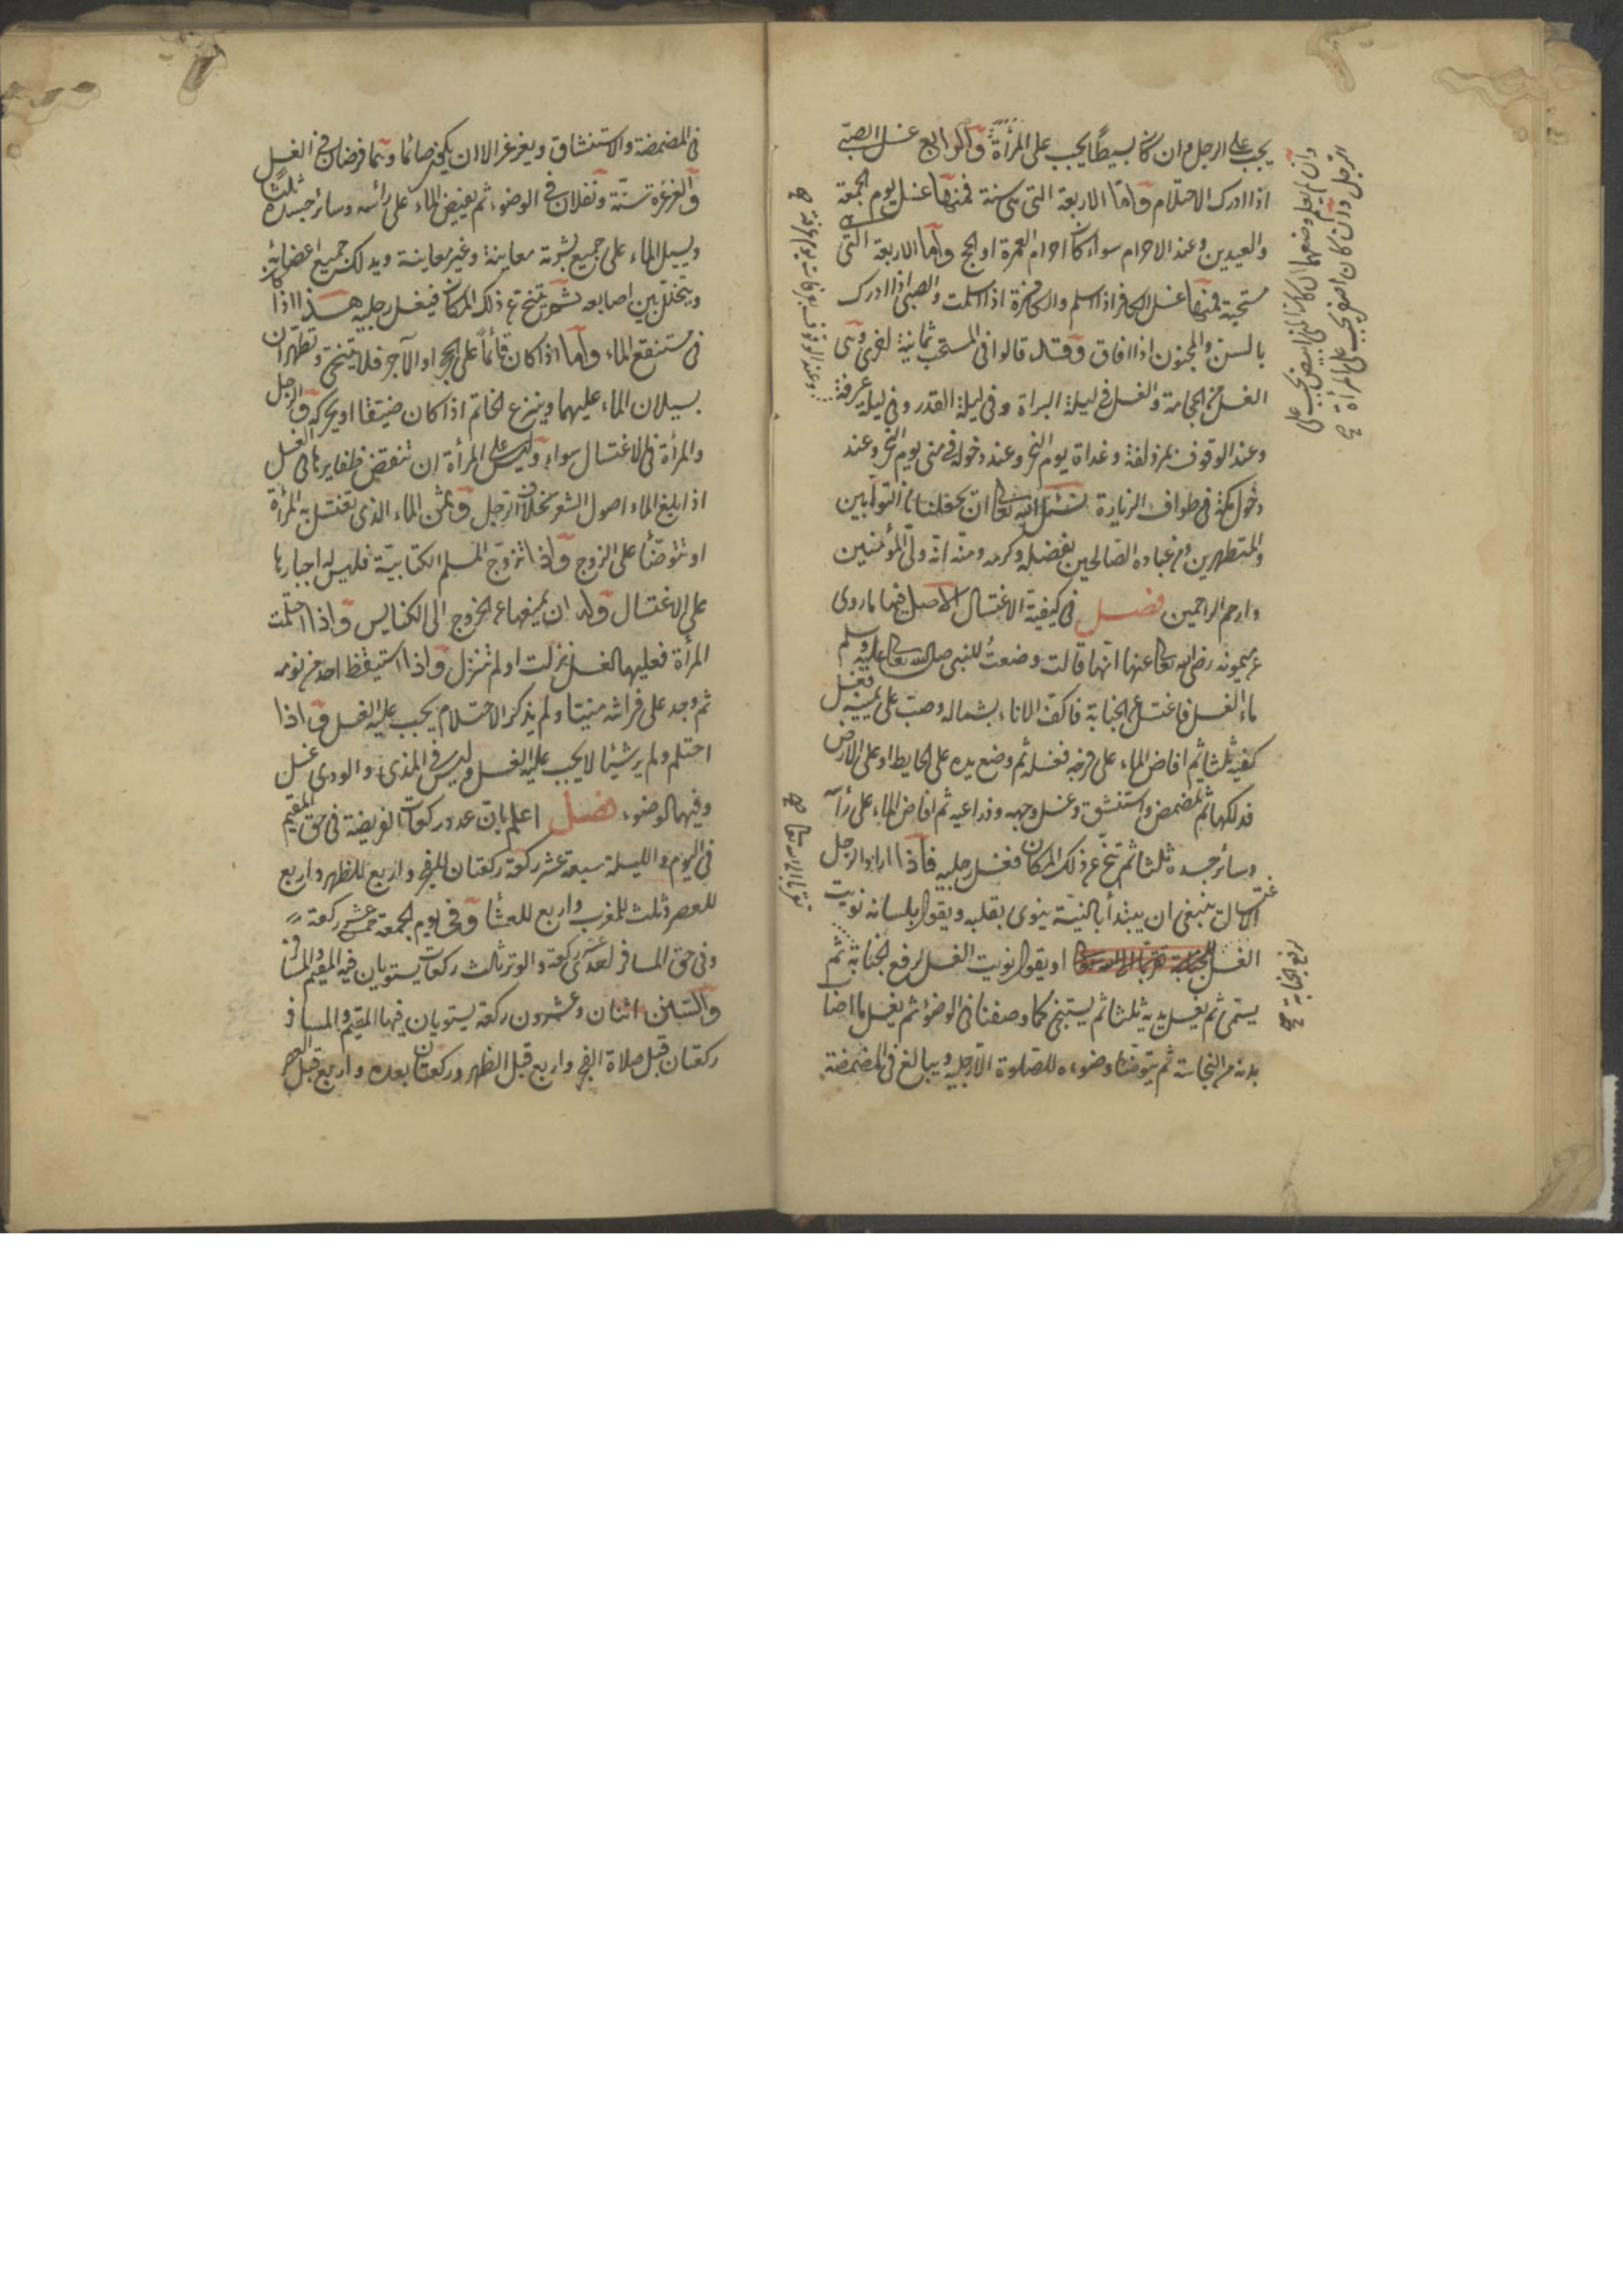 يجب على الرجل وان كان بسيطًا يجب على المرأة والرابع غسل الصبّى
اذا ادرك الاحتلام وامّا الاربعة التى هى سنة فمنها غسل يوم الجمعة
والعيدين وعند الاحرام سواء كان احرام العمرة او الحج واما الاربعة التى
مستحبة فمنها غسل الكافر اذا اسلم والكافرة اذا اسلمت والصبى اذا ادرك
بالسن والمجنون اذا افاق وقد قالوا فى المستحب ثمانية اخرى وهى
الغسل من الحجامة والغسل فى ليلة البراة وفى ليلة القدر وفى ليلة عرفة
وعند الوقوف بمزدلفة وغداة يوم النحر وعند دخوله فى منى يوم النحر وعند
دخول مكة فى طواف الزيارة نسئل الله تعالى ان يجعلنا من التوابين
والمتطهرين ومن عباده الصالحين بفضله وكرمه ومنّه انّه ولى المؤمنين
وارحم الراحمين فصل فى كيفية الاغتسال الاصل فيها ما روى
عن ميمونه رضى الله تعالى عنها انها قالت وضعتُ للنبى صلى الله تعالى عليه وسلم
ماء الغسل فاغتسل من الجنابة فاكفئ الاناء بشماله وصبّ على يمينه فغسل
كفيه ثلثا ثم افاض الماء على فرجه فغسله ثم وضع يده على الحايط او على الارض
فدلكها ثم تمضمض واستنشق وغسل وجهه وذراعيه ثم افاض الماء على رأسه
وسائر جسده ثلثا ثم تنحّ عن ذلك المكان فغسل رجليه فاذا اراد الرجل
الاغتسال ينبغى ان يبتدأ بالنيّة ينوى بقلبه ويقول بلسانه نويت
الغسل للجنابة تقربا الى الله تعالى او يقول نويت الغسل لرفع الجنابة ثم
يسمى ثم يغسل يديه ثلثا ثم يستنجى كما وصفنا فى الوضوء ثم يغسل ما اصاب
بدنه من النجاسة ثم يتوضأ وضوءه للصلوة الا رجليه ويبالغ فى المضمضة
وان لم يعلم وضعهما ان كان المنى ابيض يجب على
الرجل وان كان اصفر يجب على المرأة صح
وعند الوقوف بعرفات يوم عرفة صح
تقربا الى الله تعالى صح
لرفع الجنابة صح
فى المضمضة والاستنشاق ويغرغر الا ان يكون صائما وهما فرضان فى الغسل
والغرغرة سنّة ونفلان فى الوضوء ثم يفيض الماء على رأسه وسائر جسده ثلثا
ويسيل الماء على جميع بشرته معاينة وغير معاينة ويدلك جميع اعضائه
ويتخلّل بين اصابعه ثم يتنحّ عن ذلك المكان فيغسل رجليه هذا اذا كان
فى مستنقع الماء واما اذا كان قائمًا على الحجر او الآجر فلا يتنحّى وتطهران
بسيلان الماء عليهما وينزع الخاتم اذا كان ضيّقا او يحركه والرجل
والمرأة فى الاغتسال سواء وليس على المرأة ان تنقض ظفايرها فى الغسل
اذا بلغ الماء اصول الشعر بخلاف الرجل وثمن الماء الذى تغتسل به المرأة
او تتوضّأ على الزوج واذا تزوّج المسلم الكتابيّة فليس له اجبارها
على الاغتسال وله ان يمنعها عن الخروج الى الكنايس واذا احتلمت
المرأة فعليها الغسل نزلت او لم تنزل واذا استيقظ احد من نومه
ثم وجد على فراشه منيّا ولم يذكر الاحتلام يجب عليه الغسل واذا
احتلم ولم ير شيئا لا يجب عليه الغسل وليس فى المذى والودى غسل
وفيهما الوضوء فصل اعلم بان عدد ركعات الفريضة فى حق المقيم
فى اليوم والليلة سبعة عشر ركعة ركعتان للفجر واربع للظهر واربع
للعصر وثلث للمغرب واربع للعشاء وفى يوم الجمعة خمس عشر ركعة
وفى حق المسافر احدى عشر ركعة والوتر ثالث ركعات يستويان فيه المقيم والمسافر
والسنن اثنان وعشرون ركعة يستويان فيها المقيم والمسافر
ركعتان قبل صلاة الفجر واربع قبل الظهر وركعتان بعده واربع قبل العصر